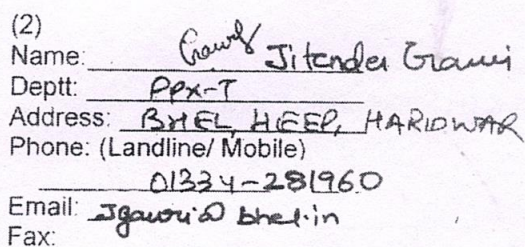 (2)
Name: Jitender Gauri
Deptt: PPX-T
Address: BHEL, HEEP, HARIDWAR
Phone: (Landline/ Mobile)
01334-281960
Email: Jgauri@bhel.in
Fax: